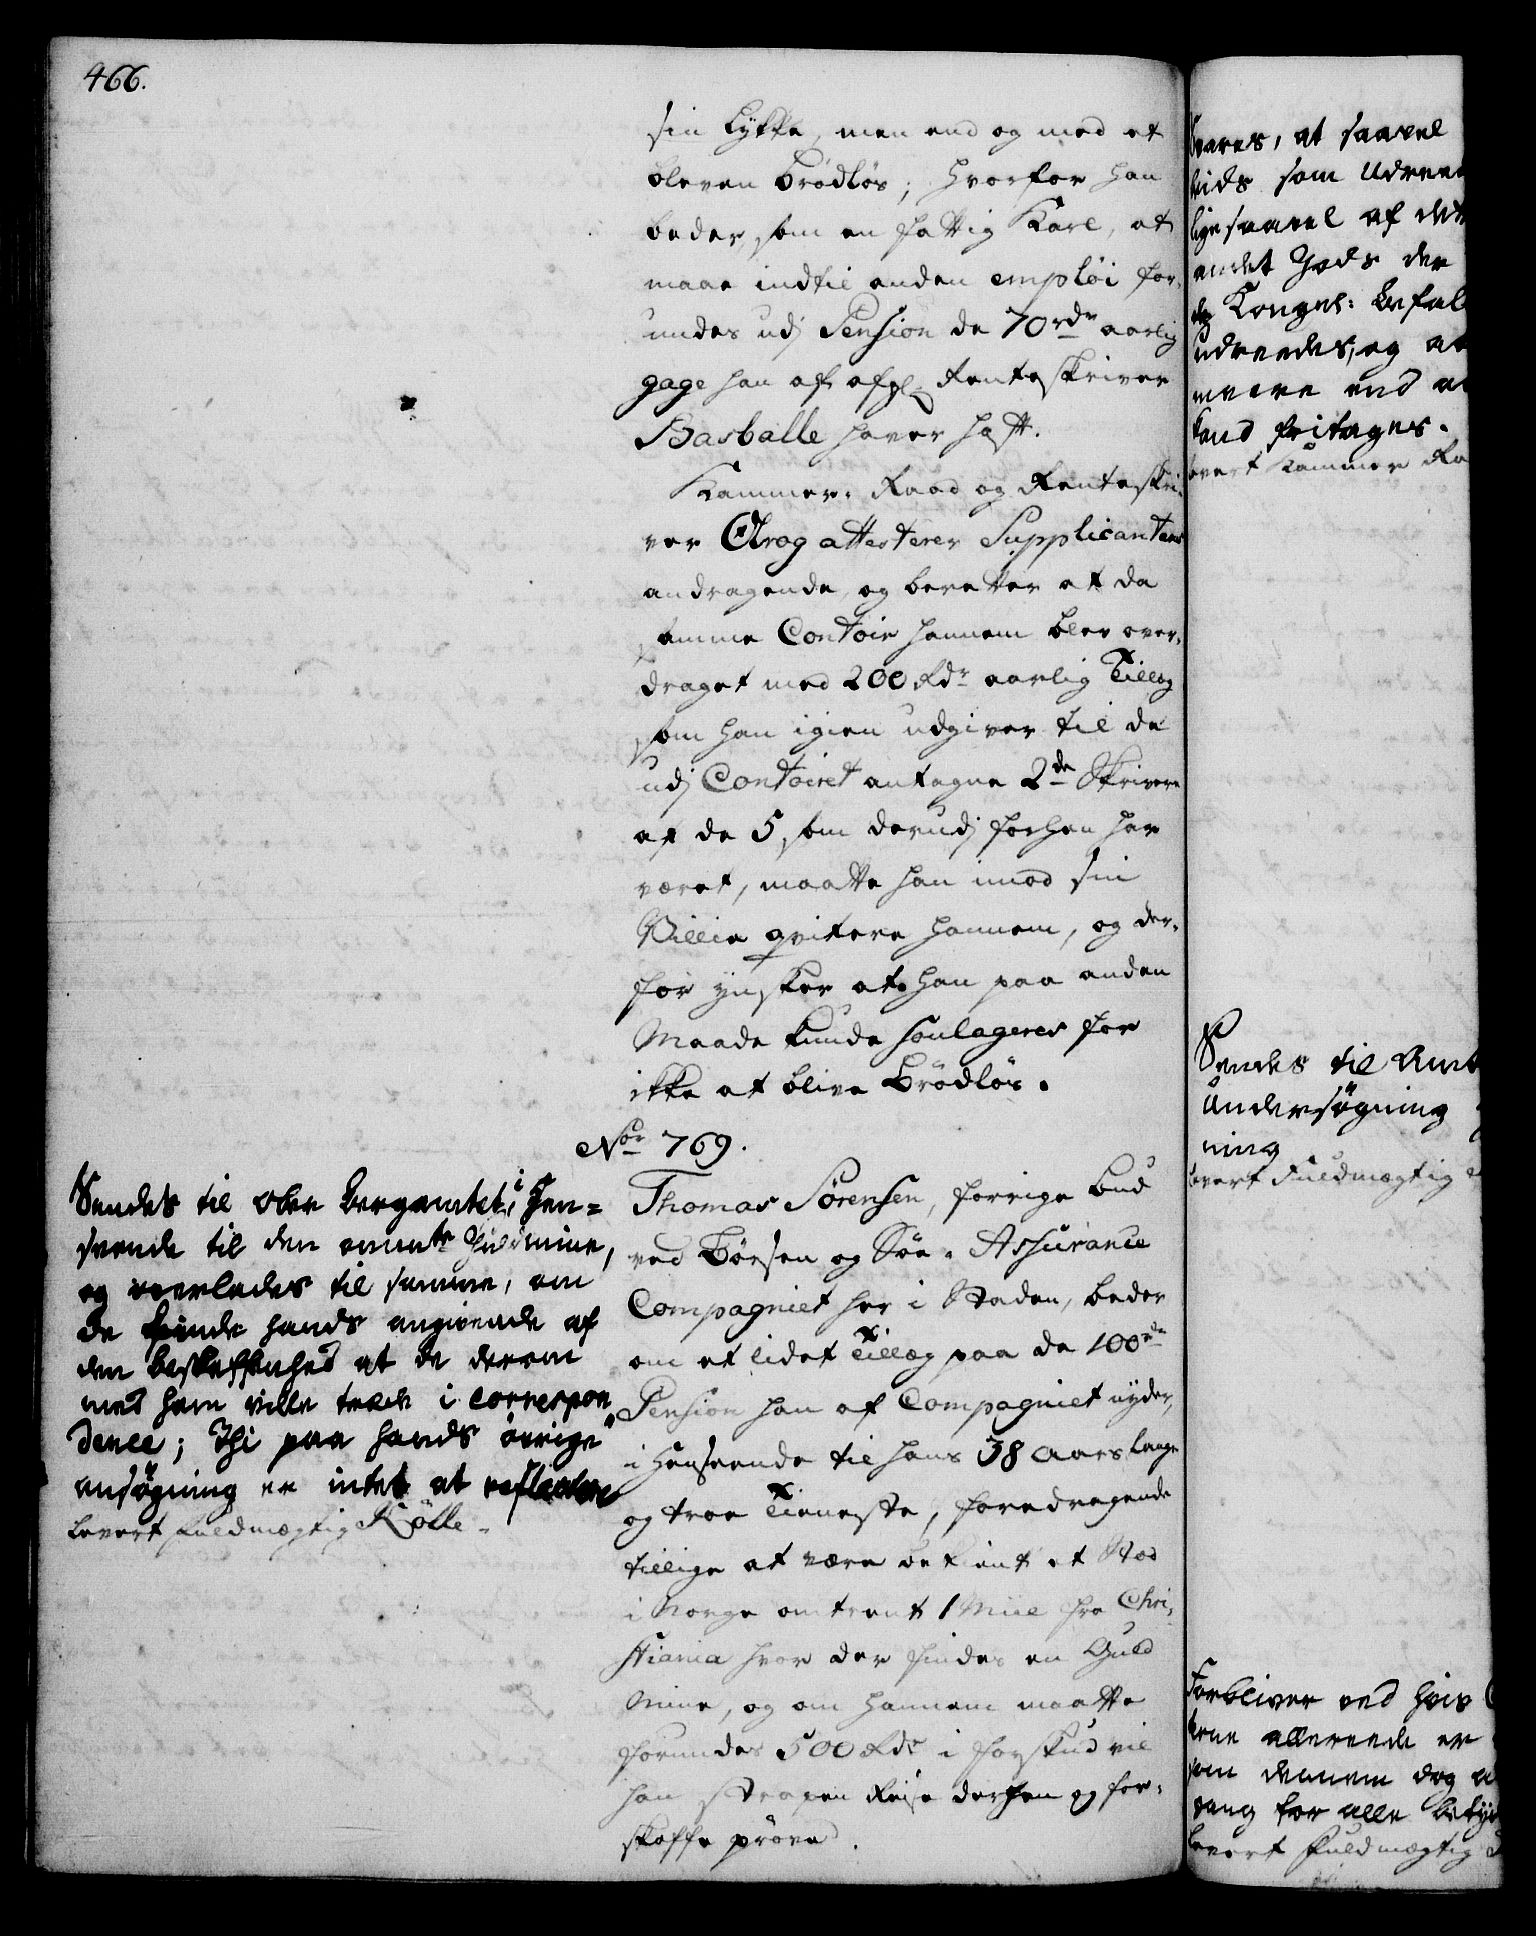 466.
sin Lykke, men end og med et
bleven Brødløs; hvorfor han
beder, som en fattig Karl, at
maae indtil anden emploi for-
undes udj Pension de 70 rdr aarlig
gage han af afgl. Renteskriver
Basballe haver haft.
Kammer-Raad og Renteskri-
ver Krog attesterer Supplicantens
andragende, og beretter at da
samme Contoir hannem blev over-
draget med 200 Rdr aarlig Tillæg
som han igien udgiver til de
udj Contoiret antagne 2de Skrivere
af de 5, som derudj forhen har
været, maatte han imod sin
Villie qvitere hannem, og der-
for ynsker at han paa anden
Maade kunde soulageres for
ikke at blive Brødløs.
No 769.
Thomas Sørensen, forrige Bud
ved Børsen og Søe-Assurance
Compagniet her i Staden, beder
om et lidet Tillæg paa de 100 rdr
Pension han af Compagniet nyder,
i Henseende til hans 38 Aars lange
og troe Tieneste, foredragende
tillige at være bekiendt et Stæd
i Norge omtrent 1 Miil fra Chri-
stiania hvor der findes en Guld
Mine, og om hannem maatte
forundes 500 Rdr i forskud vil
han straxen Reise derhen og for-
skaffe prøved.
Sendes til Ober Bergamtet, i Hen-
seende til den ommelte Guldmine,
og overlades til samme, om
de finde hands angivende af
den beskaffenhed at de derom
med ham ville træde i correspon
dence; Thi paa hands øvrige
ansøgning er intet at reflectere
Levert Fuldmægtig Kølle.
svares, at saavel
som Udreed
ligesaavel af det
andet Gods der
Kongel: Befal
udreedes, og at
meere end a
kand fritages.
Levert Kammer Ra
Sendes til Amt
Undersøgning
ning
Levert Fuldmægtig
Forbliver ved hvis
allereede er
som dennem dog
gang for alle betyd
Levert Fuldmægtig